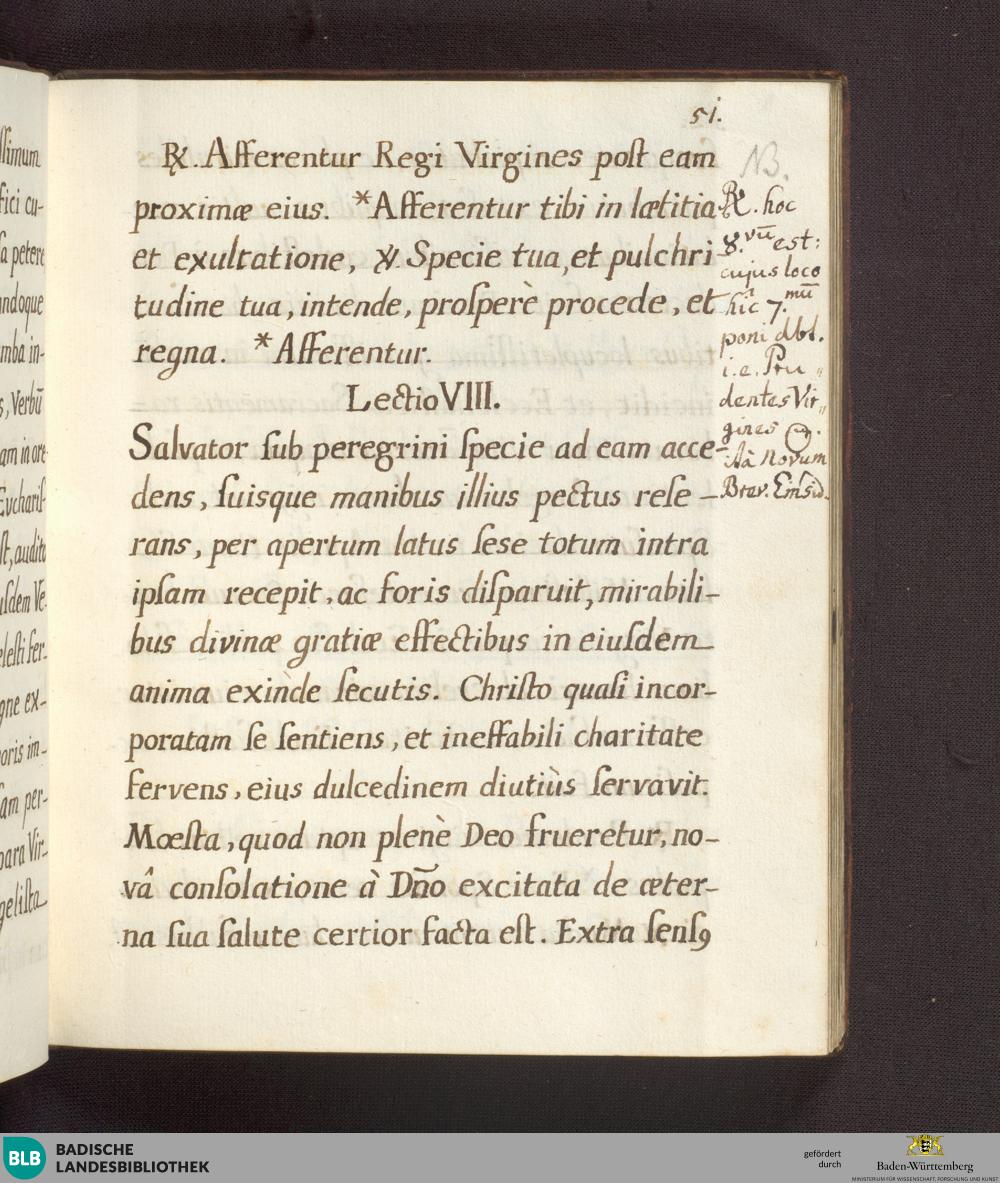 51.
℟. Afferentur Regi Virgines poſt eam
proximæ eius. *Afferentur tibi in lætitia
et exultatione, ℣. Specie tua, et pulchri
tudine tua, intende, proſperè procede, et
regna. *Afferentur.
Lectio VIII.
Salvator ſub peregrini ſpecie ad eam acce-
dens, ſuisque manibus illius pectus reſe-
rans, per apertum latus ſese totum intra
ipſam recepit, ac foris diſparuit, mirabili-
bus divinæ gratiæ effectibus in eiuſdem
anima exinde ſecutis. Chriſto quaſi incor-
poratam ſe ſentiens, et ineffabili charitate
fervens, eius dulcedinem diutiùs ſervavit.
Mœſta, quod non plenè Deo frueretur, no-
vâ conſolatione à Dño excitata de æter-
na ſua ſalute certior facta eſt. Extra ſenſꝰ
NB.
℟. hoc
8.vũ est:
cujus loco
hic 7.mũ
poni dbt.
i.e. Pru„
dentes Vir„
gines
Novum
Brev.
ſſimum
fici cu-
ſa petere
andoque
mba in-
s, Verbũ
am in ore
Euchariſ-
ſt, audito
uſdem Ve-
eleſti fer-
gne ex-
oris im-
ſam per-
para Vir-
geliſta
BLB
BADISCHE
LANDESBIBLIOTHEK
gefördert
durch
Baden-Württemberg
MINISTERIUM FÜR WISSENSCHAFT, FORSCHUNG UND KUNST